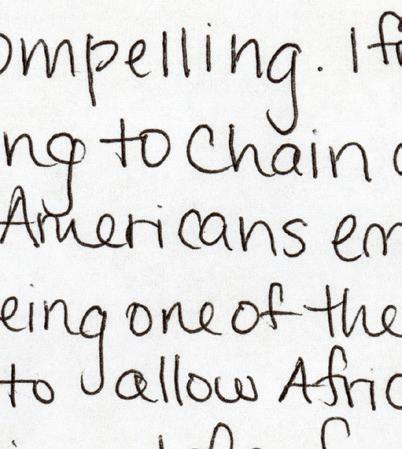 ompelling. I fo
ng to chain
Americans em
eing one of the
to allow Afric